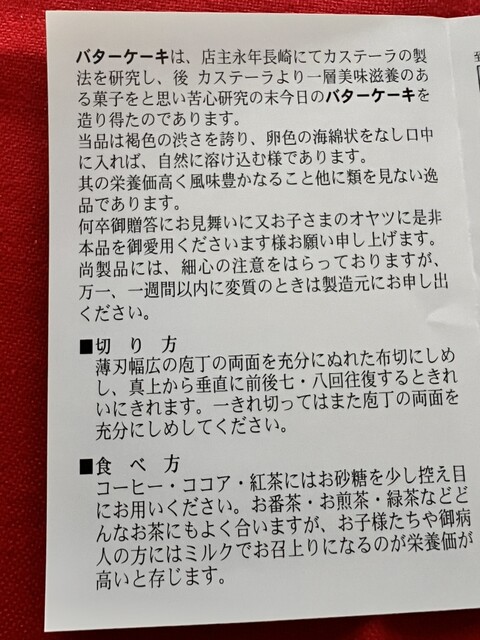 バターケーキは、店主永年長崎にてカステーラの製
法を研究し、後 カステーラより一層美味滋養のあ
る菓子をと思い苦心研究の末今日のバターケーキを
造り得たのであります。
当品は褐色の渋さを誇り、卵色の海綿状をなし口中
に入れば、自然に溶け込む様であります。
其の栄養価高く風味豊かなること他に類を見ない逸
品であります。
何卒御贈答にお見舞いに又お子さまのオヤツに是非
本品を御愛用くださいます様お願い申し上げます。
尚製品には、細心の注意をはらっておりますが、
万一、一週間以内に変質のときは製造元にお申し出
ください。
■切り方
薄刃幅広の庖丁の両面を充分にぬれた布切にしめ
し、真上から垂直に前後七・八回往復するときれ
いにきれます。一きれ切ってはまた庖丁の両面を
充分にしめしてください。
■食べ方
コーヒー・ココア・紅茶にはお砂糖を少し控え目
にお用いください。お番茶・お煎茶・緑茶などど
んなお茶にもよく合いますが、お子様たちや御病
人の方にはミルクでお召上りになるのが栄養価が
高いと存じます。